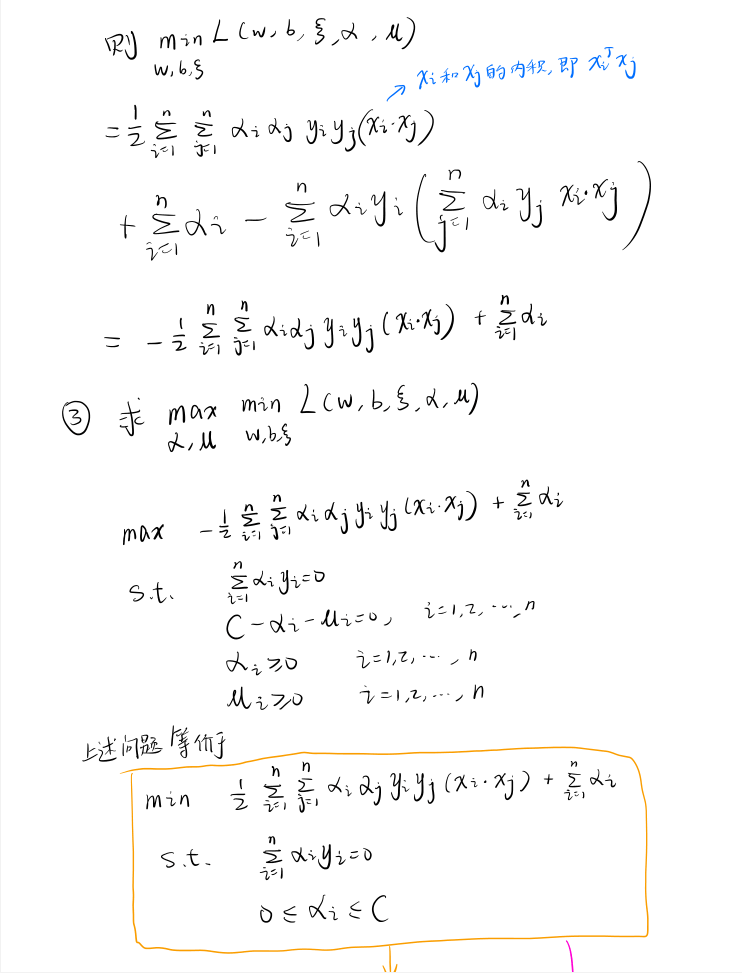 则 min L(w, b, ξ, α, μ)
w,b,ξ
xᵢ和xⱼ的内积,即 xᵢᵀxⱼ
= 1/2 ∑ᵢ₌₁ⁿ ∑ⱼ₌₁ⁿ αᵢαⱼ yᵢyⱼ(xᵢ·xⱼ)
+ ∑ᵢ₌₁ⁿ αᵢ − ∑ᵢ₌₁ⁿ αᵢyᵢ ( ∑ⱼ₌₁ⁿ αᵢ yⱼ xᵢ·xⱼ )
= − 1/2 ∑ᵢ₌₁ⁿ ∑ⱼ₌₁ⁿ αᵢαⱼ yᵢyⱼ (xᵢ·xⱼ) + ∑ᵢ₌₁ⁿ αᵢ
③ 求 max min L(w, b, ξ, α, μ)
α,μ w,b,ξ
max − 1/2 ∑ᵢ₌₁ⁿ ∑ⱼ₌₁ⁿ αᵢαⱼ yᵢyⱼ (xᵢ·xⱼ) + ∑ᵢ₌₁ⁿ αᵢ
s.t. ∑ᵢ₌₁ⁿ αᵢyᵢ=0
C−αᵢ−μᵢ=0, i=1,2,...,n
αᵢ≥0 i=1,2,...,n
μᵢ≥0 i=1,2,...,n
上述问题等价于
min 1/2 ∑ᵢ₌₁ⁿ ∑ⱼ₌₁ⁿ αᵢαⱼ yᵢyⱼ (xᵢ·xⱼ) + ∑ᵢ₌₁ⁿ αᵢ
s.t. ∑ᵢ₌₁ⁿ αᵢyᵢ=0
0 ≤ αᵢ ≤ C